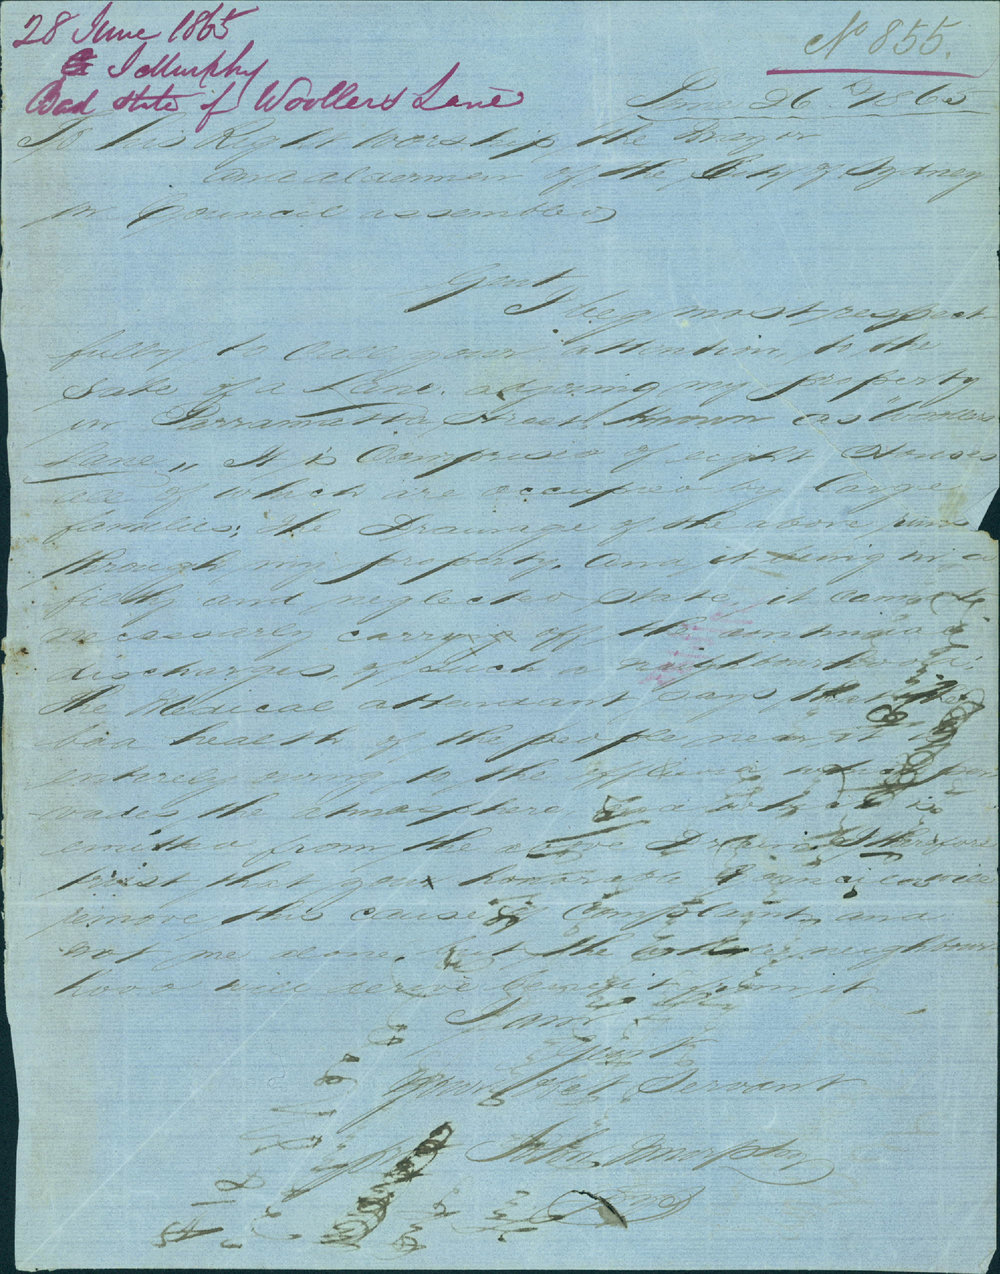 28 June 1865
No 855.
J Murphy
Bad state of Woollers Lane
June 26th 1865
To his Right Worship, the Mayor
and aldermen of the City of Sydney
in Council assembled
Gent
I beg most respect
fully to call your attention, to the
sate of a Lane. adjoining my property
in Parramatta Street known as "Woollers
Lane," It is Composed of eight Houses
all of which are occupied by large
families; the Drainage of the above runs
through my property, and it being in a
filthy and neglected state, it cannot
necessarily carrying off the continued
discharges of such a neighbourhood;
the Medical attendant says that the
bad health of the people near it is
entirely owing to the effluvia which per
vades the atmosphere, and which is
emitted from the above Drain, I therefore
trust that your honorable Council will
remove this cause of Complaint, and
not me alone, but the entire neighbour
hood will derive benefit from it
I am
Gent
Your Obet Servant
John Murphy